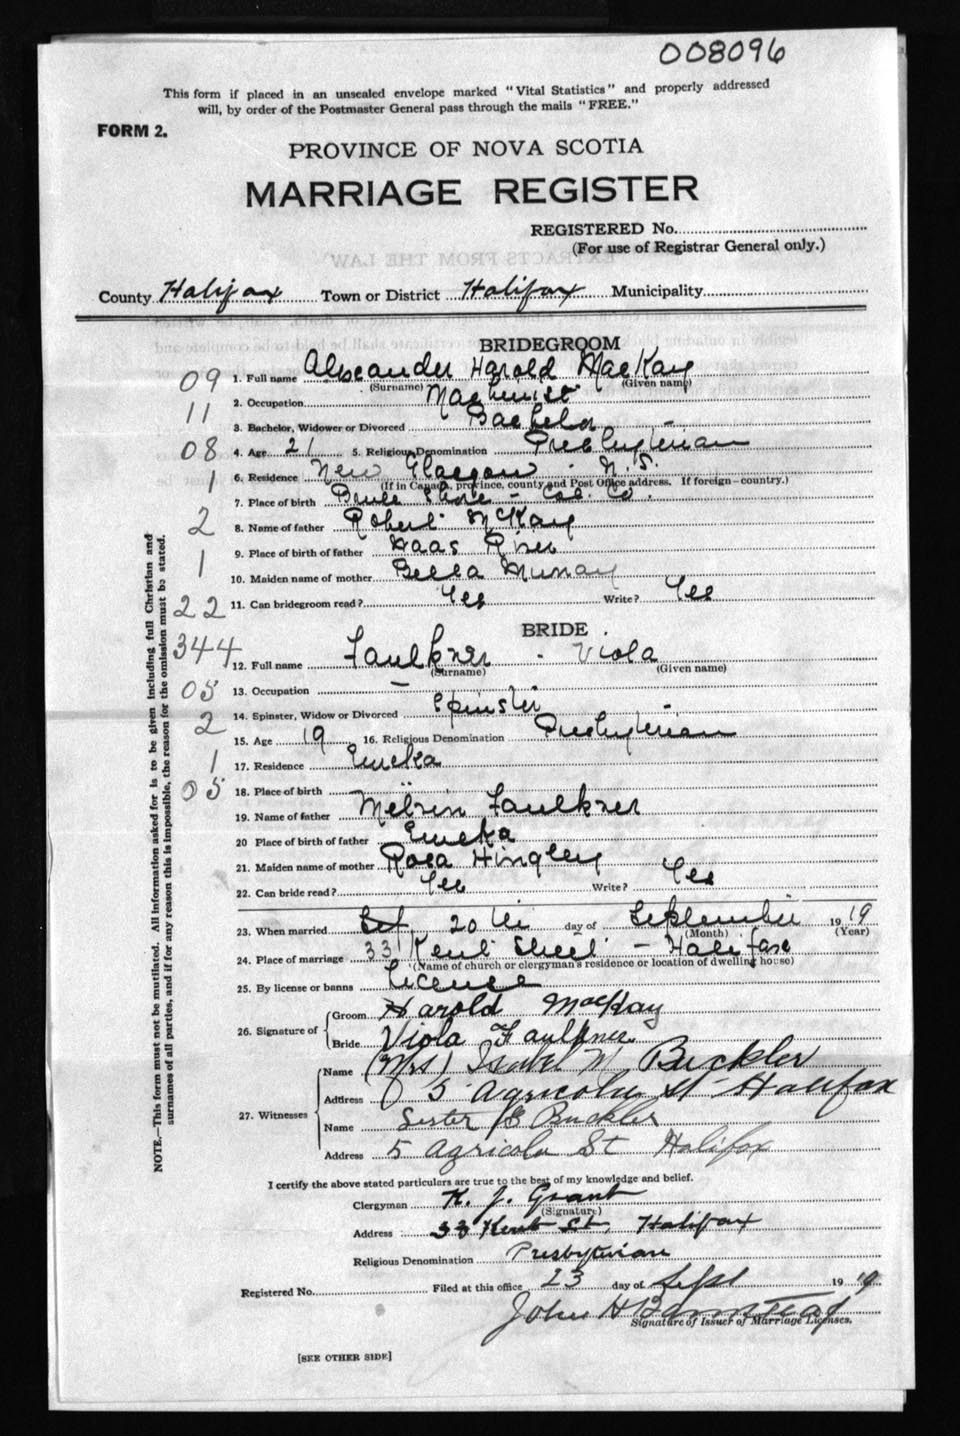 008096
This form if placed in an unsealed envelope marked "Vital Statistics" and properly addressed
will, by order of the Postmaster General pass through the mails "FREE."
FORM 2.
PROVINCE OF NOVA SCOTIA
MARRIAGE REGISTER
REGISTERED No.
(For use of Registrar General only.)
EXTRACTS FROM THE LAW
County Halifax Town or District Halifax Municipality
BRIDEGROOM
09 1. Full name Alexander Harold MacKay
(Surname) (Given name)
2. Occupation Machinist
11 3. Bachelor, Widower or Divorced Bachelor
08 4. Age 21 5. Religious Denomination Presbyterian
1 6. Residence New Glasgow - N.S.
(If in Canada, province, county and Post Office address. If foreign—country.)
7. Place of birth Brule Shore - Col. Co.
2 8. Name of father Robert McKay
9. Place of birth of father River
1 10. Maiden name of mother Bella Murray
22 11. Can bridegroom read? Yes Write? Yes
BRIDE
344 12. Full name Faulkner - Viola
(Surname) (Given name)
05 13. Occupation —
2 14. Spinster, Widow or Divorced Spinster
15. Age 19 16. Religious Denomination Presbyterian
1 17. Residence Eureka
05 18. Place of birth "
19. Name of father Melvin Faulkner
20 Place of birth of father Eureka
21. Maiden name of mother Rosa Hingley
22. Can bride read? Yes Write? Yes
23. When married 20th day of September 1919
(Month) (Year)
24. Place of marriage 33 Kent Street - Halifax
(Name of church or clergyman's residence or location of dwelling house)
25. By license or banns Licence
26. Signature of Groom Harold MacKay
Bride Viola Faulkner
27. Witnesses Name (Mrs) Isabel M Buckler
Address 5 Agricola St Halifax
Name Lester Buckler
Address 5 Agricola St Halifax
I certify the above stated particulars are true to the best of my knowledge and belief.
Clergyman K. J. Grant
(Signature)
Address 33 Kent St. Halifax
Religious Denomination Presbyterian
Registered No. Filed at this office 23 day of Sept 1919
John H Barnstead
Signature of Issuer of Marriage Licenses.
[SEE OTHER SIDE]
NOTE.—This form must not be mutilated. All information asked for is to be given including full Christian and
surnames of all parties, and if for any reason this is impossible, the reason for the omission must be stated.